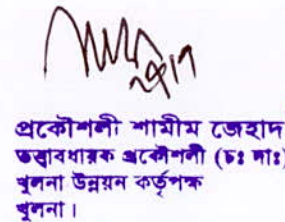 প্রকৌশলী শামীম জেহাদ
তত্ত্বাবধায়ক প্রকৌশলী (চঃ দাঃ)
খুলনা উন্নয়ন কর্তৃপক্ষ
খুলনা।